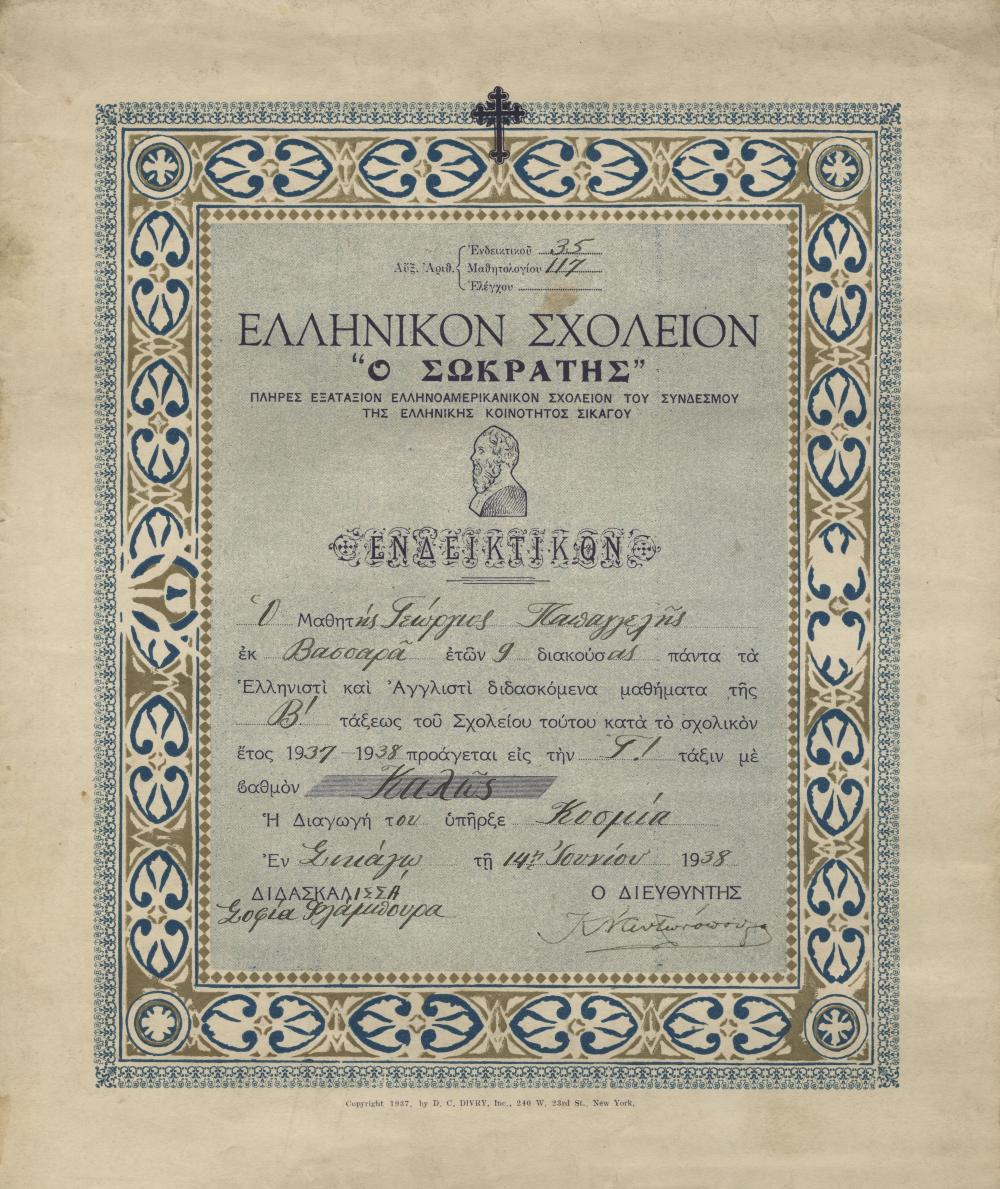 Ἐνδεικτικοῦ 35
Αὔξ. Ἀριθ. Μαθητολογίου 117
Ἐλέγχου
ΕΛΛΗΝΙΚΟΝ ΣΧΟΛΕΙΟΝ
“Ο ΣΩΚΡΑΤΗΣ”
ΠΛΗΡΕΣ ΕΞΑΤΑΞΙΟΝ ΕΛΛΗΝΟΑΜΕΡΙΚΑΝΙΚΟΝ ΣΧΟΛΕΙΟΝ ΤΟΥ ΣΥΝΔΕΣΜΟΥ
ΤΗΣ ΕΛΛΗΝΙΚΗΣ ΚΟΙΝΟΤΗΤΟΣ ΣΙΚΑΓΟΥ
ΕΝΔΕΙΚΤΙΚΟΝ
Ὁ Μαθητής Γεώργιος Παπαγγελῆς
ἐκ Βασσαρᾶ ἐτῶν 9 διακούσας πάντα τὰ
Ἑλληνιστὶ καὶ Ἀγγλιστὶ διδασκόμενα μαθήματα τῆς
Β' τάξεως τοῦ Σχολείου τούτου κατὰ τὸ σχολικὸν
ἔτος 1937–1938 προάγεται εἰς τὴν Γ' τάξιν μὲ
βαθμὸν Καλῶς
Ἡ Διαγωγή του ὑπῆρξε Κοσμία
Ἐν Σικάγῳ τῇ 14ῃ Ἰουνίου 1938
ΔΙΔΑΣΚΑΛΙΣΣΑ Ο ΔΙΕΥΘΥΝΤΗΣ
Σοφία Φλάμπουρα
Copyright 1937, by D. C. DIVRY, Inc., 240 W. 23rd St., New York.